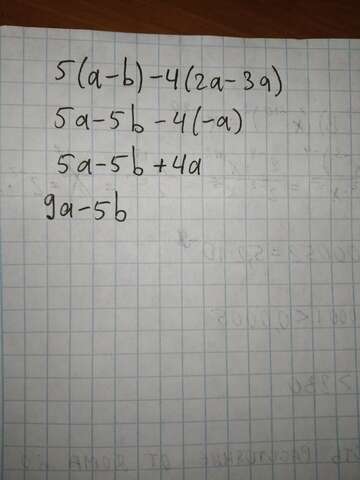 5(a-b)-4(2a-3a)
5a-5b-4(-a)
5a-5b+4a
9a-5b